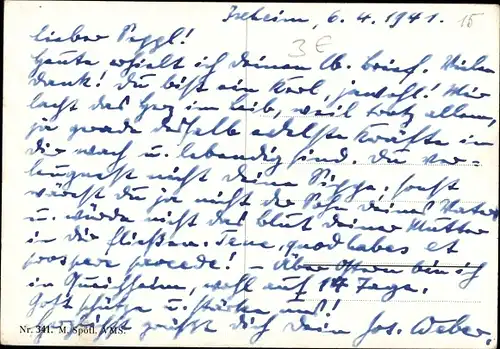 Ixheim, 6.4.1941. 15
Lieber Peppl! 3€
Heute erhielt ich deinen lb. Brief. Vielen
Dank! Du bist ein Kerl, jawohl! Mir
lacht das Herz im Leib, weil trotz allem,
ja gerade deshalb edelste Kräfte in
dir wach u. lebendig sind. Du ver-
leugnest nicht deine Sippe, sonst
wärst du ja nicht der Sohn deines Vaters
u. würde nicht das Blut deiner Mutter
in dir fließen. Tene, quod habes et
prospere procede! – Über Ostern bin ich
in Queichheim, wohl auf 14 Tage.
Gott schütze u. stärke uns!
grüßt dich dein Jos. Weber.
Nr. 341. M. Spötl. AMS.